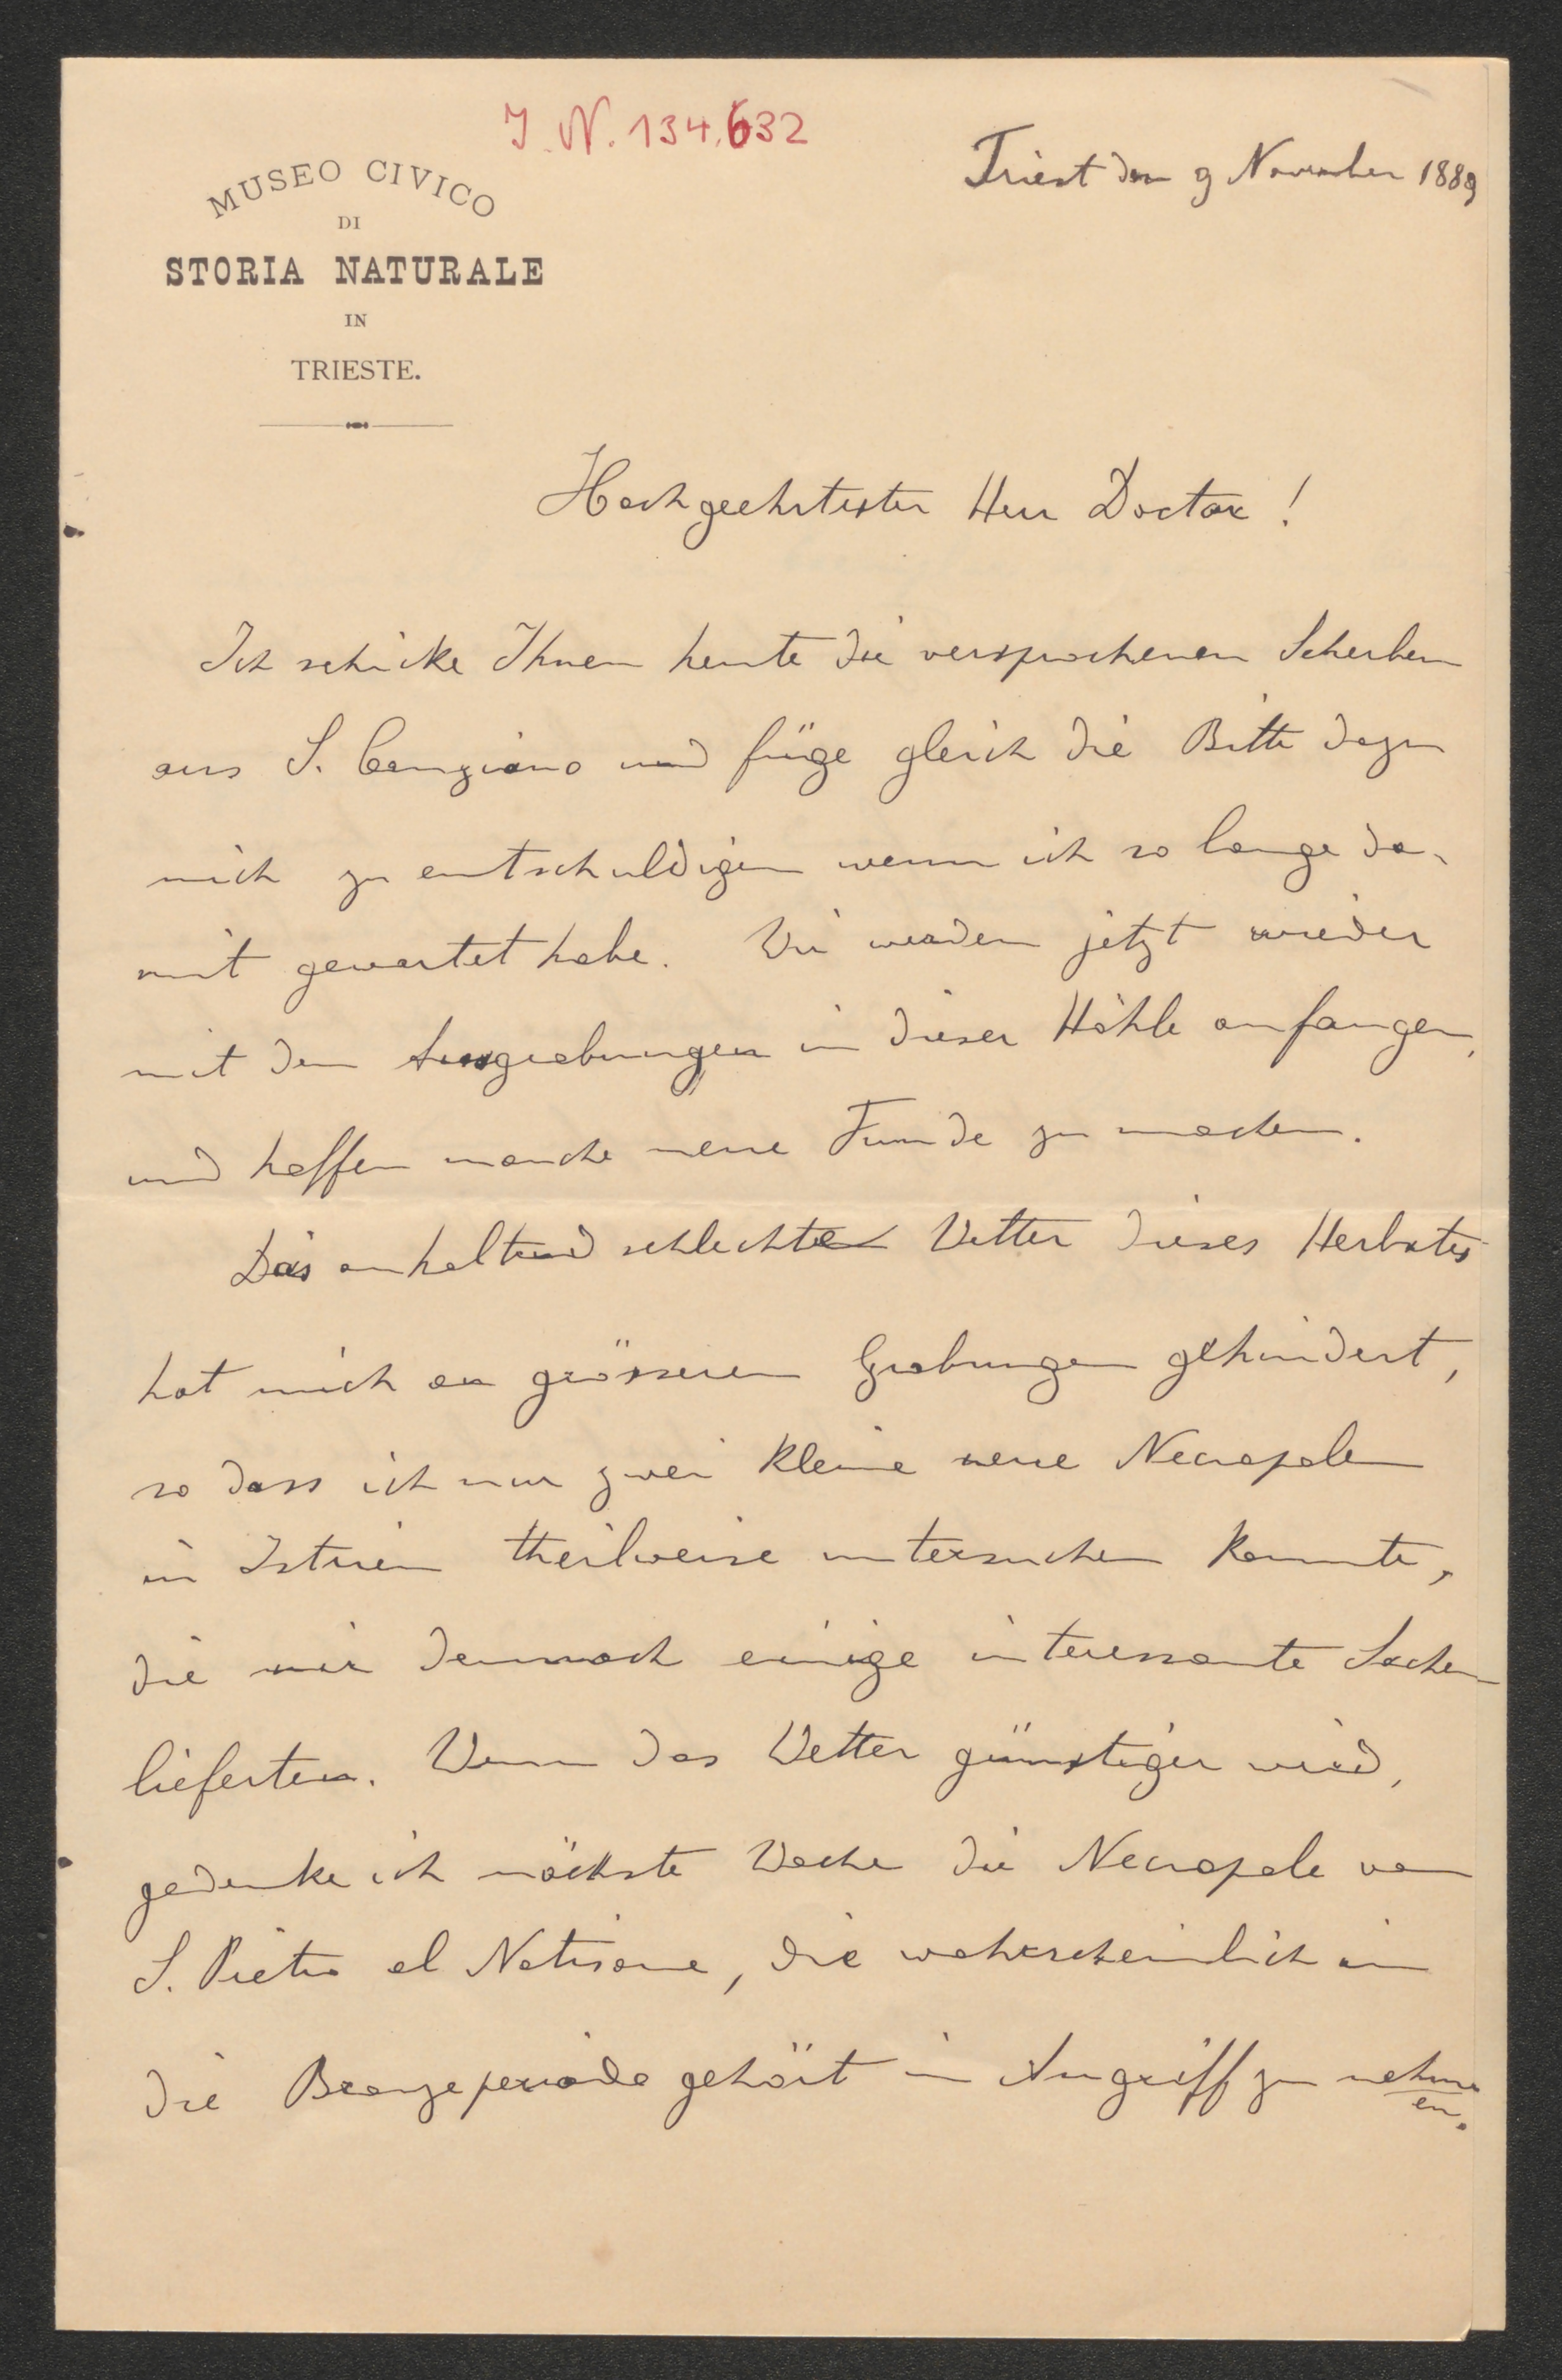 J. N. 134.632
MUSEO CIVICO
DI
STORIA NATURALE
IN
TRIESTE.
Triest den 9 November 1889
Hochgeehrtester Herr Doctor!
Ich schicke Ihnen heute die versprochenen Scherben
aus S. Canziano und füge gleich die Bitte dazu
mich zu entschuldigen wenn ich so lange da-
mit gewartet habe. Wir werden jetzt wieder
mit den Ausgrabungen in dieser Höhle anfangen,
und hoffen manche neue Funde zu machen.
Das anhaltend schlechte Wetter dieses Herbstes
hat mich an grösseren Grabungen gehindert,
so dass ich nur zwei kleine neue Necropolen
in Istrien theilweise untersuchen konnte,
die mir dennoch einige interessante Sachen
lieferten. Wenn das Wetter günstiger wird,
gedenke ich nächste Woche die Necropole von
S. Pietro al Natisone, die wahrscheinlich in
die Bronzeperiode gehört in Angriff zu nehm-
en.